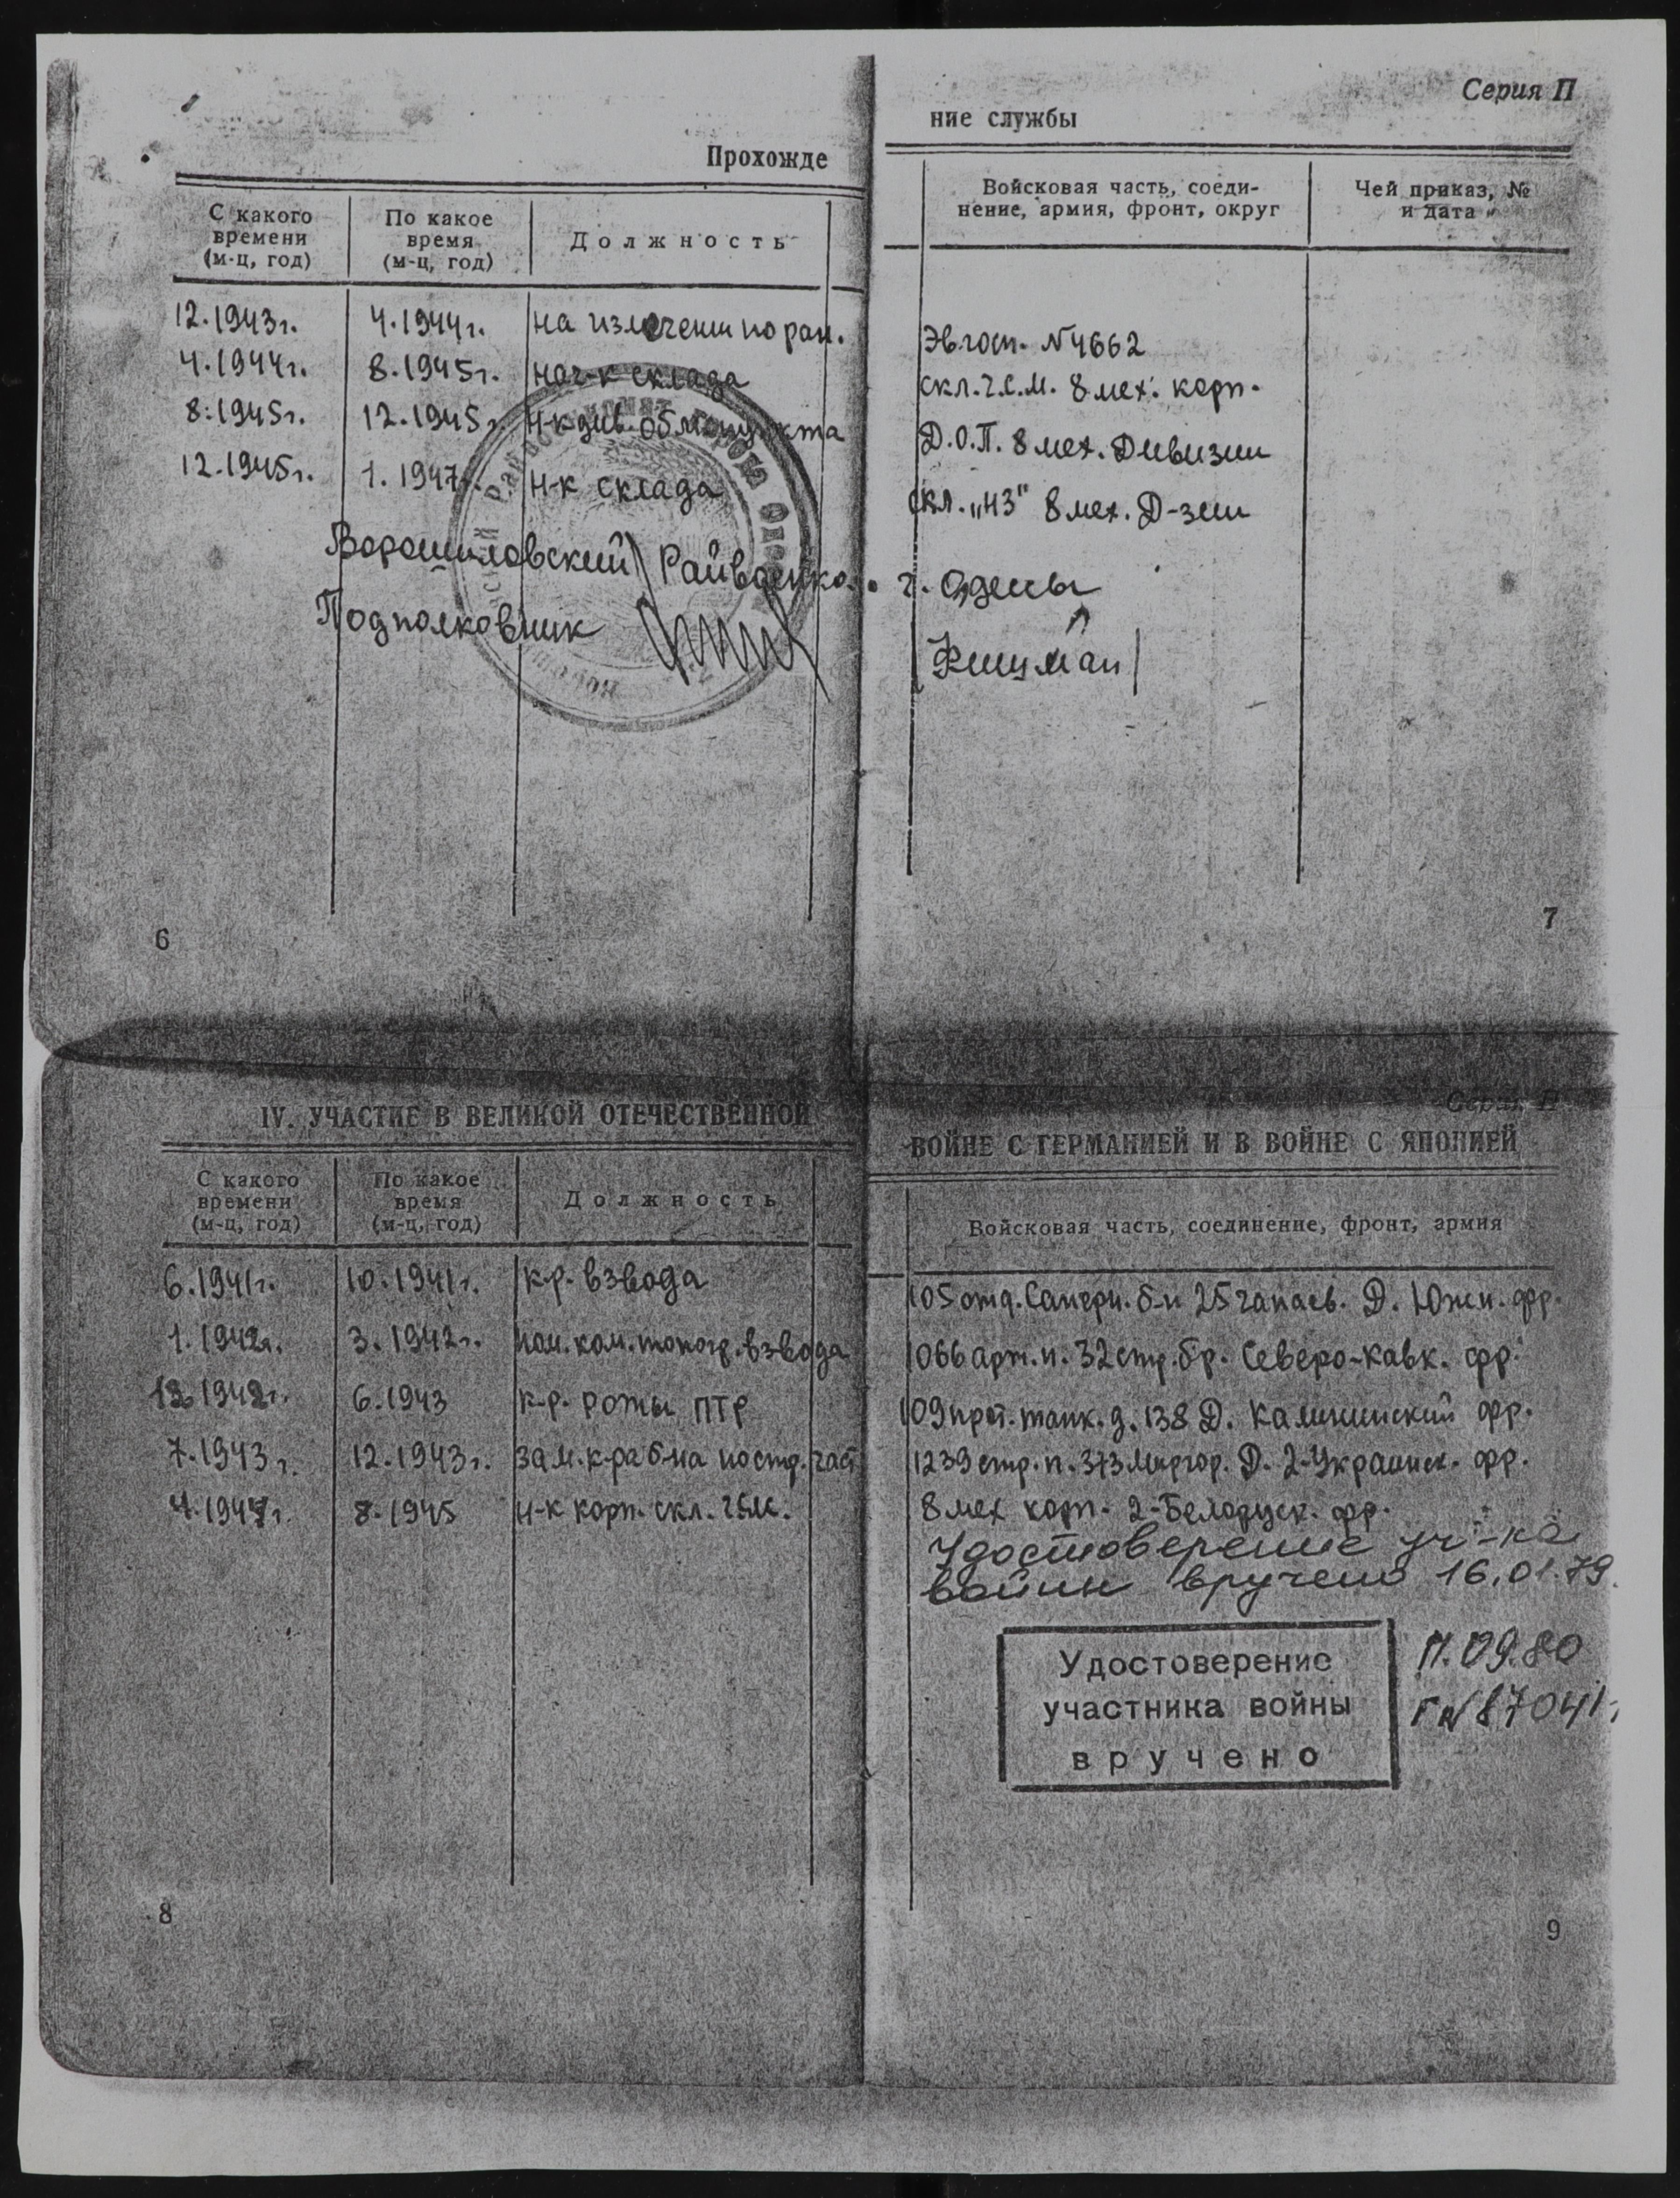 Серия П
Прохожде
ние службы
С какого времени (м-ц, год)
По какое время (м-ц, год)
Должность
Войсковая часть, соеди-
нение, армия, фронт, округ
Чей приказ, №
и дата
12.1943г. 4.1944г. на излечении по ран. Эв.госп. №4662
4.1944г. 8.1945г. нач-к склада скл. г.с.м. 8 мех. корп.
8.1945г. 12.1945г. н-к див. обм. пункта Д.О.П. 8 мех. Дивизии
12.1945г. 1.1947г. н-к склада скл. „НЗ" 8 мех. Д-зии
Ворошиловский Райвоенко. г. Одессы
Подполковник
6
7
Серия П
IV. УЧАСТИЕ В ВЕЛИКОЙ ОТЕЧЕСТВЕННОЙ
ВОЙНЕ С ГЕРМАНИЕЙ И В ВОЙНЕ С ЯПОНИЕЙ
С какого времени (м-ц, год)
По какое время (м-ц, год)
Должность
Войсковая часть, соединение, фронт, армия
6.1941г. 10.1941г. к-р. взвода 105 отд. Саперн. б-н 25 чапаев. Д. Южн. фр.
1.1942г. 3.1942г. пом. ком. топогр. взвода 1066 арт. п. 32 стр. бр. Северо-Кавк. фр.
1942г. 6.1943 к-р. роты ПТР 109 прот. танк. д. 138 Д. Калининский фр.
7.1943г. 12.1943г. зам. к-ра б-на по стр. част 1239 стр. п. 373 Миргор. Д. 2-Украинск. фр.
4.1944г. 8.1945 н-к корп. скл. гсм. 8 мех корп. 2-Белорусск. фр.
Удостоверение уч-ка
войны вручено 16.01.79.
Удостоверение
участника войны
вручено
09.80
№ 87041
8
9